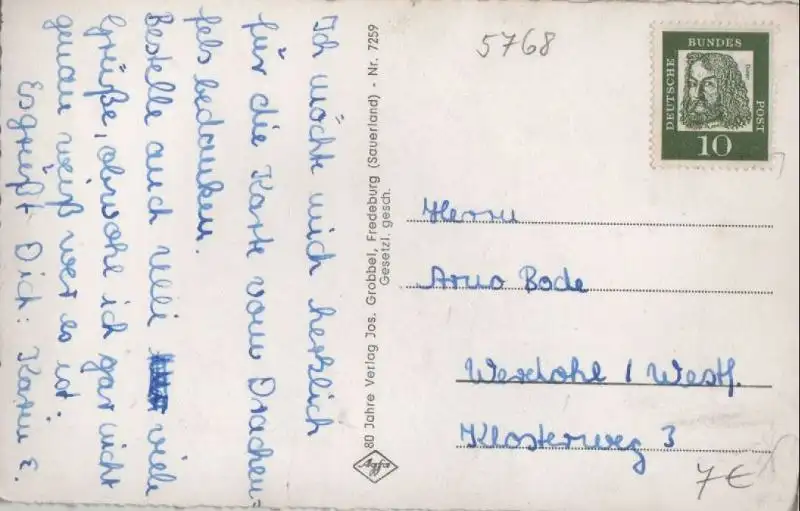 Ich möchte mich herzlich
für die Karte vom Drachen=
fels bedanken.
Bestelle auch Ulli viele
Grüße, obwohl ich gar nicht
genau weiß wer es ist.
Es grüßt Dich: Karin
80 Jahre Verlag Jos. Grobbel, Fredeburg (Sauerland) - Nr. 7259
Gesetzl. gesch.
Agfa
5768
DEUTSCHE BUNDES POST
Dürer
10
Herrn
Arno Bode
Werdohl / Westf.
Klosterweg 3
7€